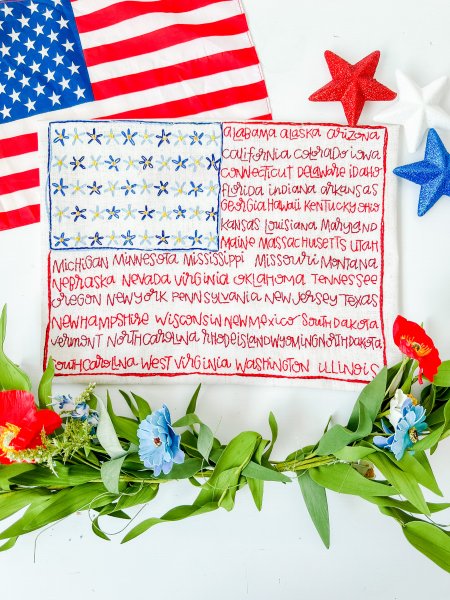 ALABAMA ALASKA ARIZONA
CALIFORNIA COLORADO IOWA
CONNECTICUT DELAWARE IDAHO
FLORIDA INDIANA ARKANSAS
GEORGIA HAWAII KENTUCKY OHIO
KANSAS LOUISIANA MARYLAND
MAINE MASSACHUSETTS UTAH
MICHIGAN MINNESOTA MISSISSIPPI MISSOURI MONTANA
NEBRASKA NEVADA VIRGINIA OKLAHOMA TENNESSEE
OREGON NEW YORK PENNSYLVANIA NEW JERSEY TEXAS
NEW HAMPSHIRE WISCONSIN NEW MEXICO SOUTH DAKOTA
VERMONT NORTH CAROLINA RHODE ISLAND WYOMING NORTH DAKOTA
SOUTH CAROLINA WEST VIRGINIA WASHINGTON ILLINOIS